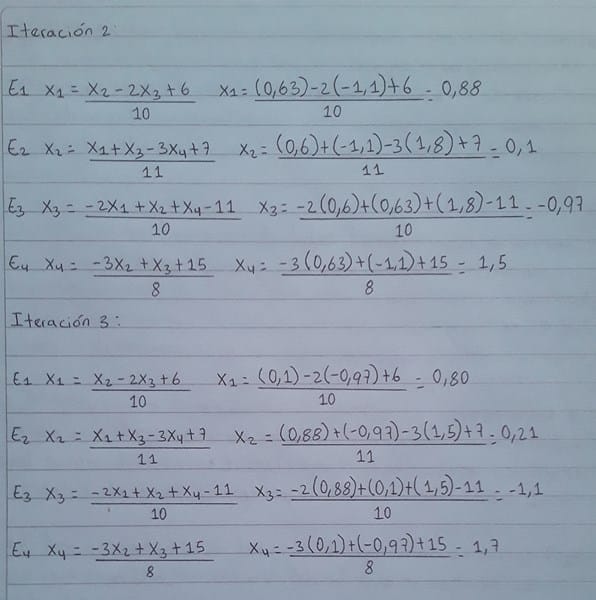 Iteración 2:
E1 X1 = (X2 - 2X3 + 6)/10 X1 = ((0,63) - 2(-1,1) + 6)/10 = 0,88
E2 X2 = (X1 + X3 - 3X4 + 7)/11 X2 = ((0,6) + (-1,1) - 3(1,8) + 7)/11 = 0,1
E3 X3 = (-2X1 + X2 + X4 - 11)/10 X3 = (-2(0,6) + (0,63) + (1,8) - 11)/10 = -0,97
E4 X4 = (-3X2 + X3 + 15)/8 X4 = (-3(0,63) + (-1,1) + 15)/8 = 1,5
Iteración 3:
E1 X1 = (X2 - 2X3 + 6)/10 X1 = ((0,1) - 2(-0,97) + 6)/10 = 0,80
E2 X2 = (X1 + X3 - 3X4 + 7)/11 X2 = ((0,88) + (-0,97) - 3(1,5) + 7)/11 = 0,21
E3 X3 = (-2X1 + X2 + X4 - 11)/10 X3 = (-2(0,88) + (0,1) + (1,5) - 11)/10 = -1,1
E4 X4 = (-3X2 + X3 + 15)/8 X4 = (-3(0,1) + (-0,97) + 15)/8 = 1,7